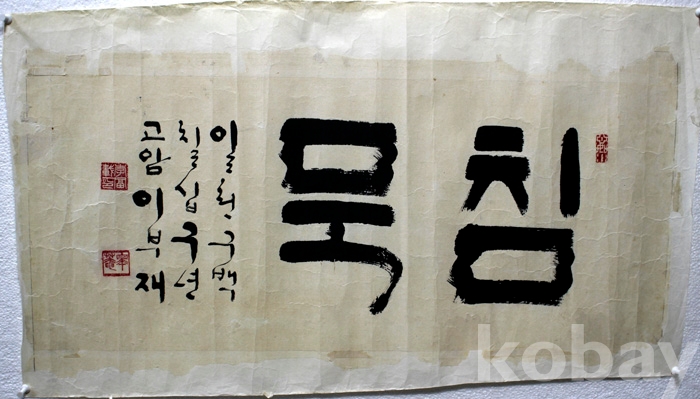 침묵
일천구백
칠십구년
고암 이부재
kobay